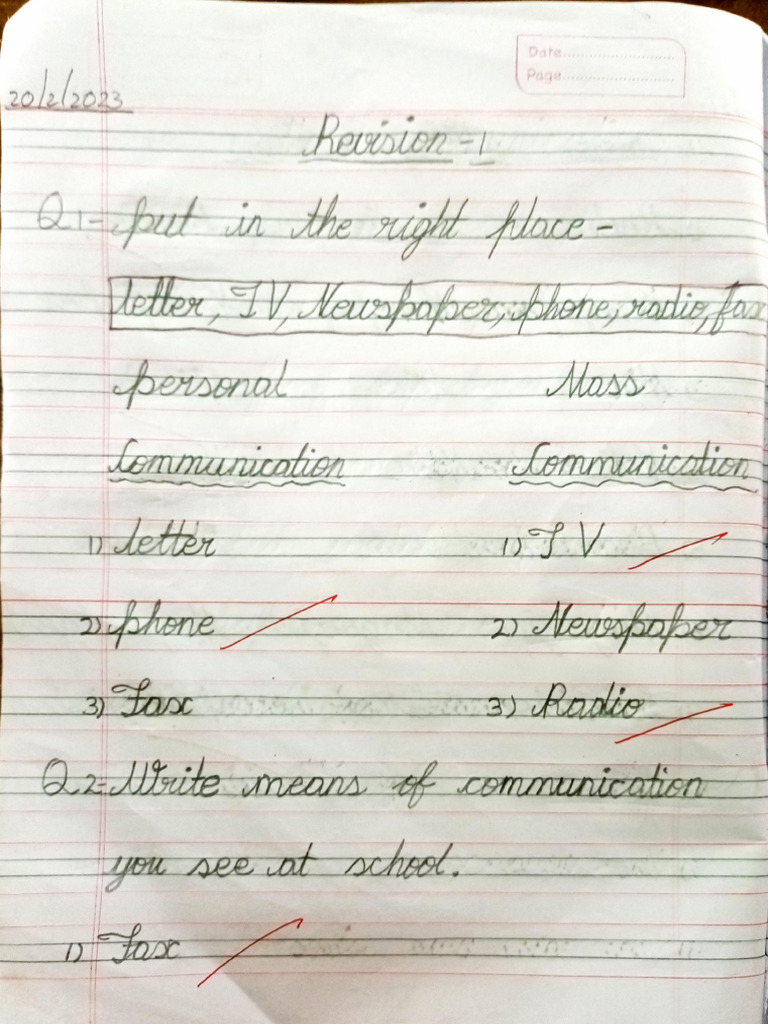 Date..........................
Page..........................
20/2/2023
Revision-1
Q1- put in the right place-
letter, TV, Newspaper, phone, radio, fax
personal Mass
Communication Communication
1) letter 1) TV
2) phone 2) Newspaper
3) Fax 3) Radio
Q2- Write means of communication
you see at school.
1) Fax